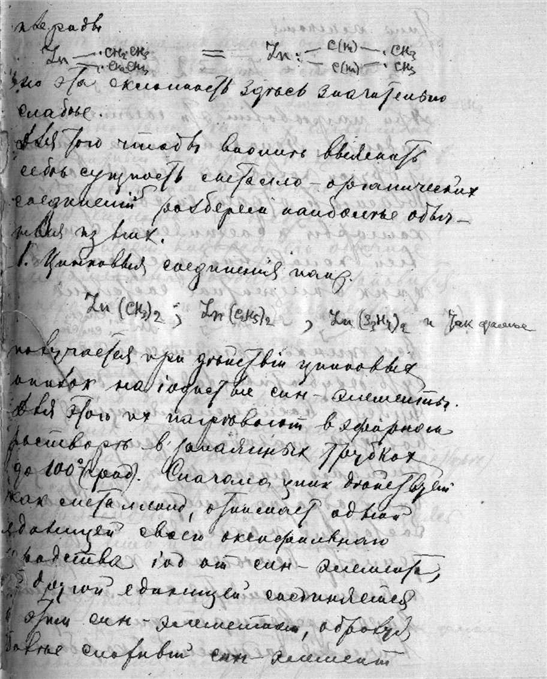 Zn CH2CH3 CH2CH3 = Zn C(H2) CH3 C(H2) CH3
но эта склонность здѣсь значительно
слабѣе.
Для того чтобы вполнѣ выяснить
себѣ сущность металло-органическихъ
соединенiй разберемъ наиболѣе обыч-
ныя изъ нихъ.
1. Цинковыя соединенiя напр.
Zn(CH3)2 ; Zn(C2H5)2 , Zn(C3H7)2 и такъ далѣе
получается при дѣйствiи цинковыхъ
опилокъ на iодистые син-элементы.
Для этого ихъ нагрѣваютъ въ эфирномъ
растворѣ въ запаянныхъ трубкахъ
до 100° град. Сначала цинкъ дѣйствуетъ
какъ металлоидъ, отнимаетъ одной
единицей своего
сродства iодъ отъ син-элемента,
другой единицей соединяется
этимъ син-элементомъ, образуя
син-элементъ